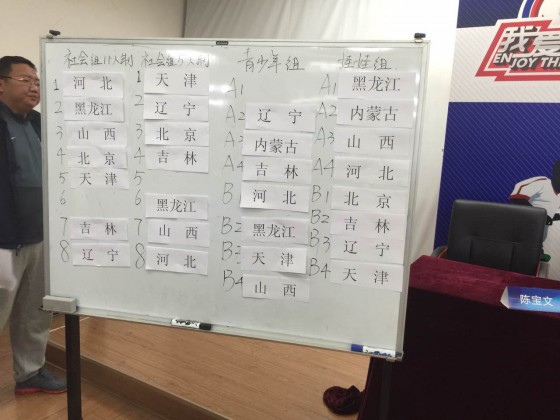 社会组11人制
1 河北
2 黑龙江
3 山西
4 北京
5 天津
6
7 吉林
8 辽宁
社会组5人制
1 天津
2 辽宁
3 北京
4 吉林
5
6 黑龙江
7 山西
8 河北
青少年组
A1
A2 辽宁
A3 内蒙古
A4 吉林
B 河北
B2 黑龙江
B3 天津
B4 山西
组
A1 黑龙江
A2 内蒙古
A3 山西
A4 河北
B1 北京
B2 吉林
B3 辽宁
B4 天津
我爱
ENJOY THE
陈宝文